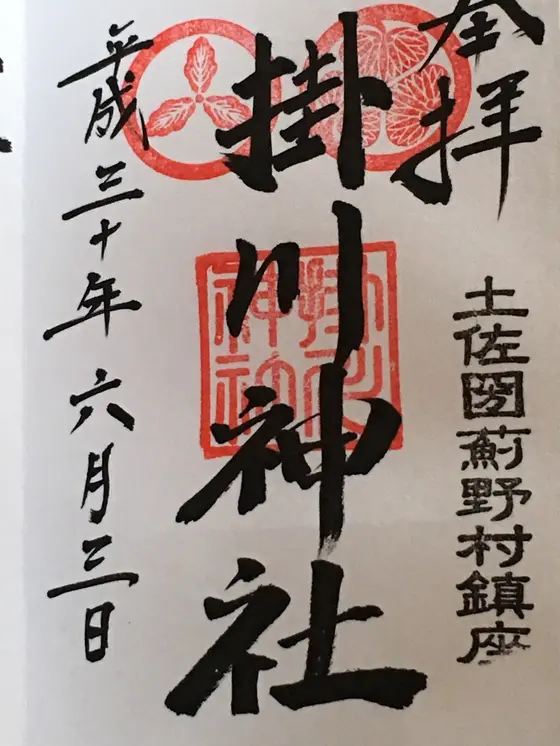 奉拝
土佐圀薊野村鎮座
掛川神社
掛川神社
平成三十年六月三日